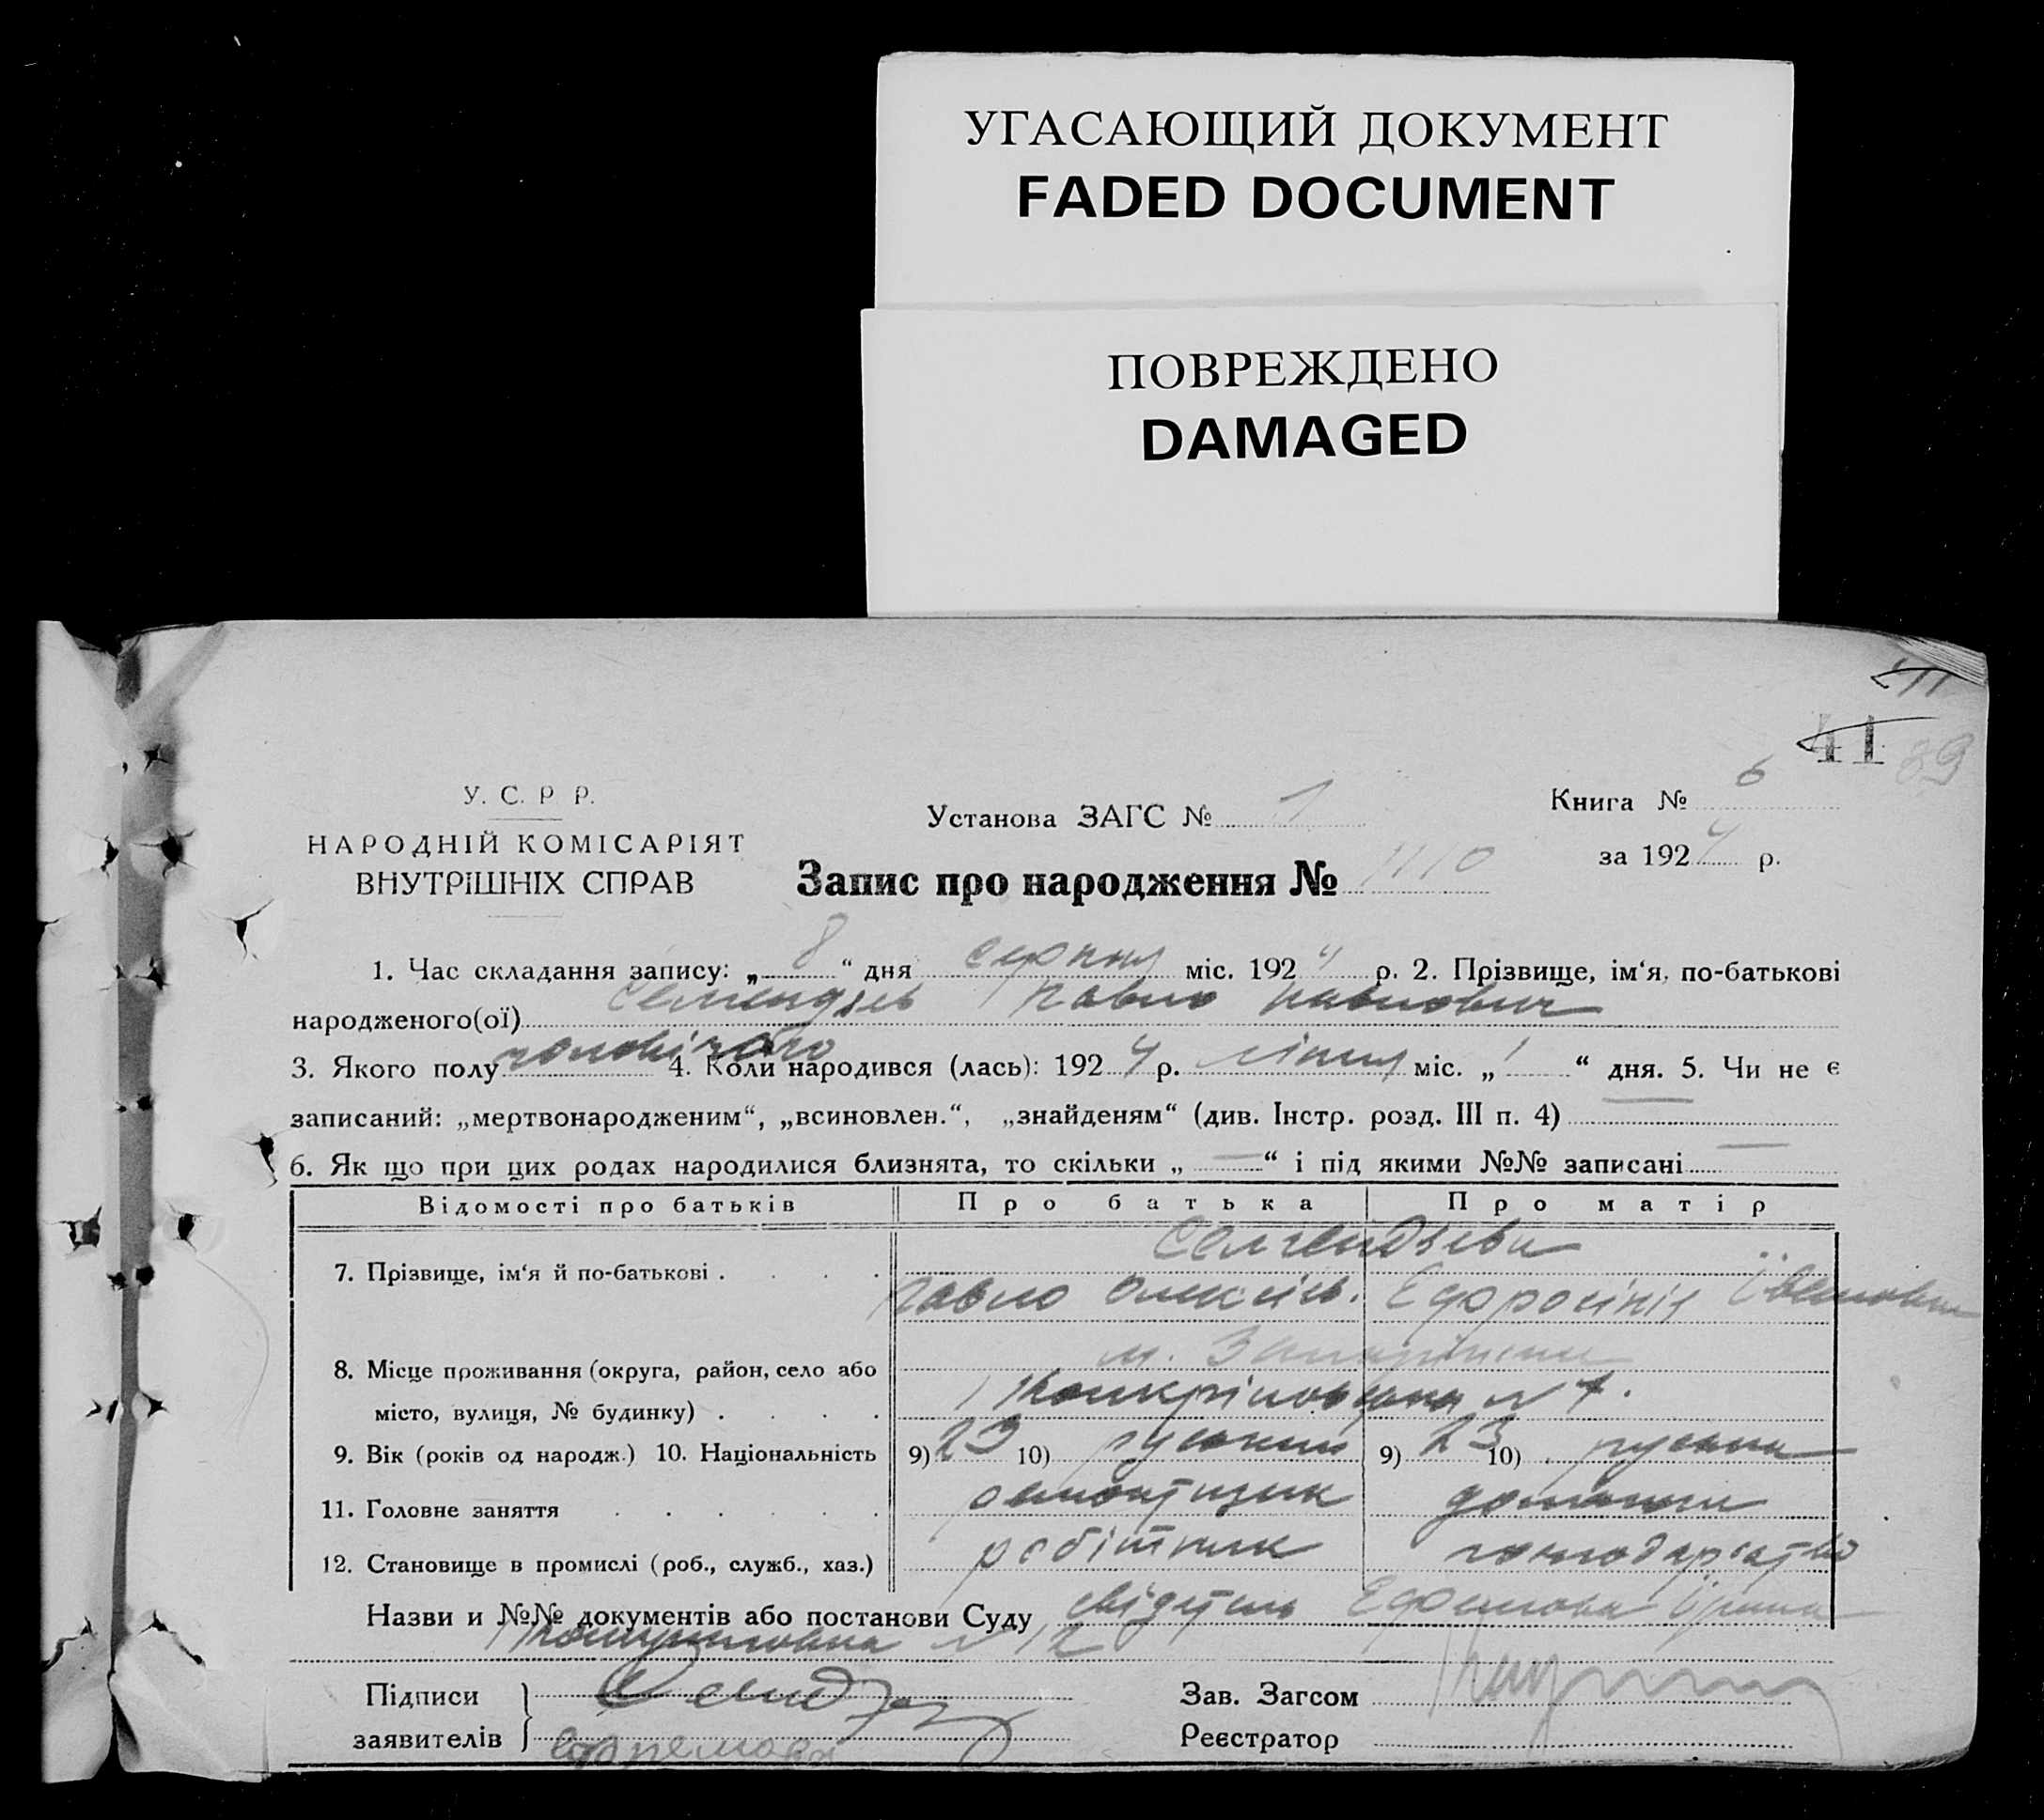 УГАСАЮЩИЙ ДОКУМЕНТ
FADED DOCUMENT
ПОВРЕЖДЕНО
DAMAGED
41 89
У. С. Р Р.
НАРОДНІЙ КОМІСАРІЯТ
ВНУТРІШНІХ СПРАВ
Установа ЗАГС № 1
Книга № 6
за 1924 р.
Запис про народження № 1110
1. Час складання запису: „ 8 “ дня серпня міс. 1924 р. 2. Прізвище, ім‘я, по-батькові
народженого(ої) Павло Павлович
3. Якого полу чоловічого 4. Коли народився (лась): 1924 р. ліпня міс. „ 1 “ дня. 5. Чи не є
записаний: „мертвонародженим“, „всиновлен.“, „знайденям“ (див. Інстр. розд. III п. 4) —
6. Як що при цих родах народилися близнята, то скільки „ — “ і під якими №№ записані —
Відомості про батьків Про батька Про матір
7. Прізвище, ім‘я й по-батькові . . . .
Павло Олексієв. Ефросінія
8. Місце проживання (округа, район, село або
м.
місто, вулиця, № будинку) . . . .
№ 7.
9. Вік (років од народж.) 10. Національність 9) 23 10) руський 9) 23 10) руська
11. Головне заняття . . . . . . домашнє
12. Становище в промислі (роб., служб., хаз.) робітник господарство
Назви и №№ документів або постанови Суду свідетель Ефремова
№ 12
Підписи
заявителів
Ефремова
Зав. Загсом
Реєстратор